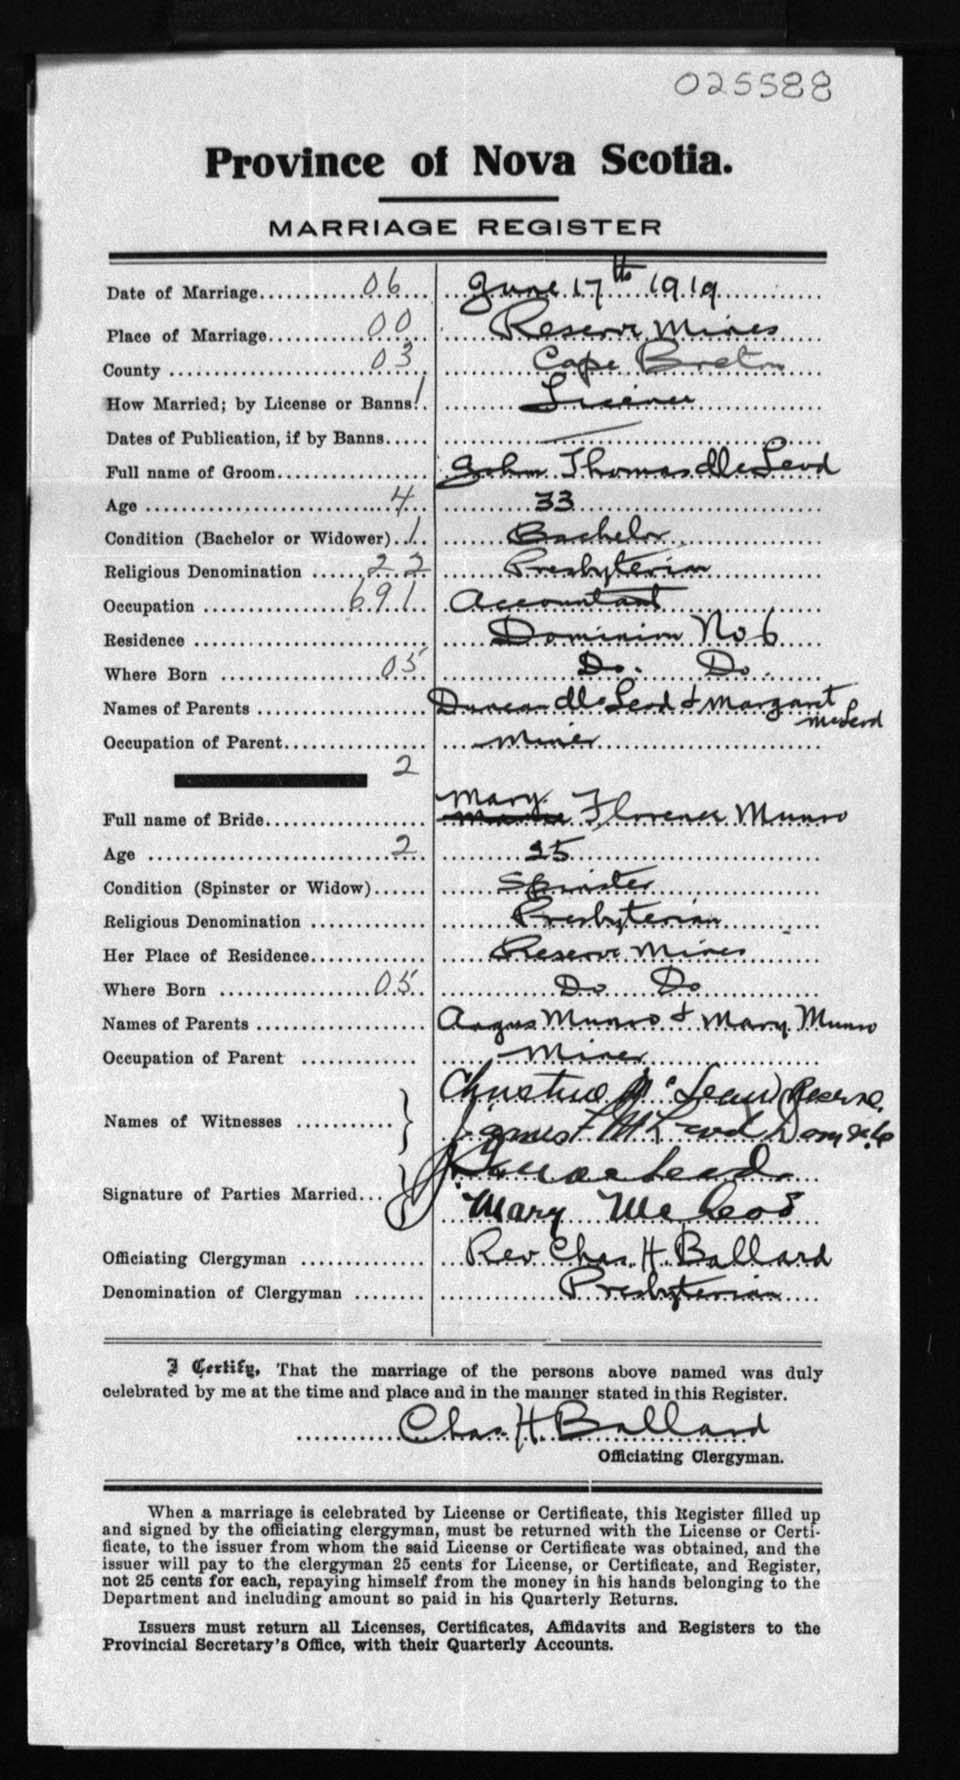 025588
Province of Nova Scotia.
MARRIAGE REGISTER
Date of Marriage............06... June 17th 1919
Place of Marriage............00 Reserve Mines
County ............03 Cape Breton
How Married; by License or Banns 1. License
Dates of Publication, if by Banns..... —
Full name of Groom............ John Thomas McLeod
Age ............4 33
Condition (Bachelor or Widower)..1. Bachelor
Religious Denomination ......22 Presbyterian
Occupation ............691 Accountant
Residence ............ Dominion No 6
Where Born ............05 Do. Do.
Names of Parents ............ Duncan McLeod & Margaret
McLeod
Occupation of Parent............ Miner
2
Mary
Full name of Bride............ Florence Munro
Age ............2 25
Condition (Spinster or Widow)...... Spinster
Religious Denomination ............ Presbyterian
Her Place of Residence............ Reserve Mines
Where Born ............05 Do Do
Names of Parents ............ Angus Munro & Mary Munro
Occupation of Parent ............ Miner
Christine Reserve
Names of Witnesses ............ James F McLeod Dom No 6
McLeod
Signature of Parties Married... Mary McLeod
Officiating Clergyman ............ Rev. Chas. H. Ballard
Denomination of Clergyman ........ Presbyterian
I Certify, That the marriage of the persons above named was duly
celebrated by me at the time and place and in the manner stated in this Register.
Chas. H. Ballard
Officiating Clergyman.
When a marriage is celebrated by License or Certificate, this Register filled up
and signed by the officiating clergyman, must be returned with the License or Certi-
ficate, to the issuer from whom the said License or Certificate was obtained, and the
issuer will pay to the clergyman 25 cents for License, or Certificate, and Register,
not 25 cents for each, repaying himself from the money in his hands belonging to the
Department and including amount so paid in his Quarterly Returns.
Issuers must return all Licenses, Certificates, Affidavits and Registers to the
Provincial Secretary's Office, with their Quarterly Accounts.